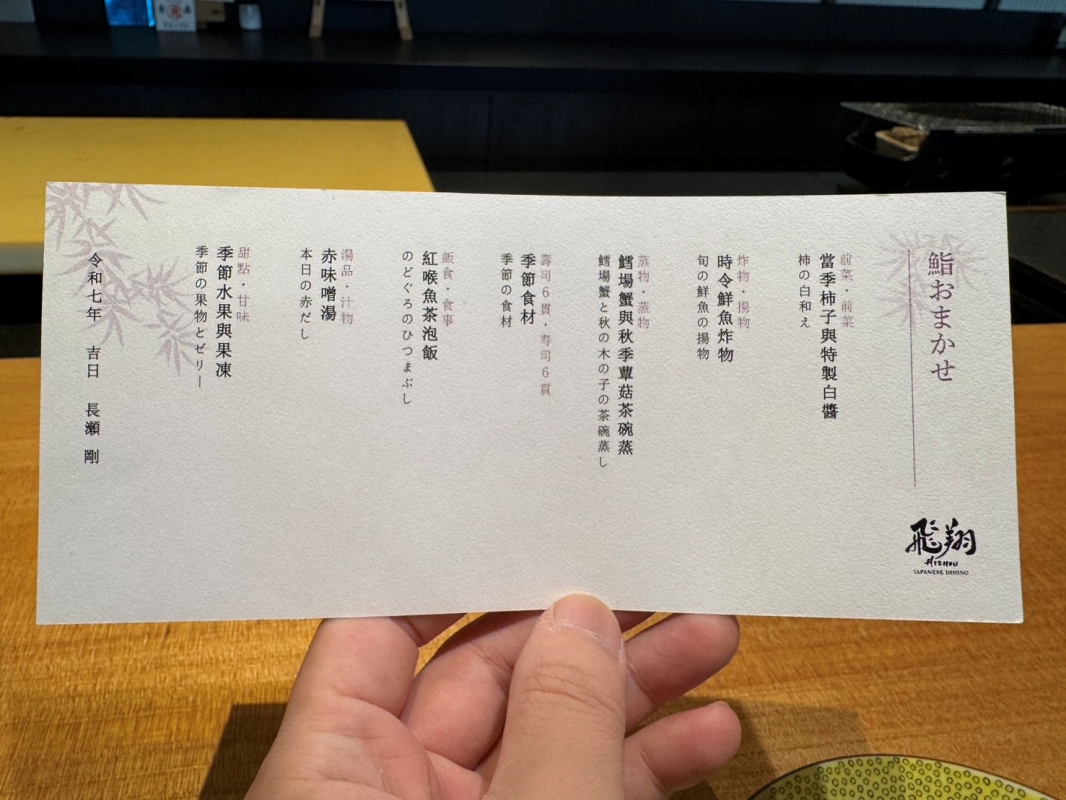 鮨おまかせ
前菜・前菜
當季柿子與特製白醬
柿の白和え
炸物・揚物
時令鮮魚炸物
旬の鮮魚の揚物
蒸物・蒸物
鱈場蟹與秋季蕈菇茶碗蒸
鱈場蟹と秋の木の子の茶碗蒸し
壽司6貫・寿司6貫
季節食材
季節の食材
飯食・食事
紅喉魚茶泡飯
のどぐろのひつまぶし
湯品・汁物
赤味噌湯
本日の赤だし
甜點・甘味
季節水果與果凍
季節の果物とゼリー
令和七年 吉日 長瀬 剛
飛翔
HISHOU
JAPANESE DINING